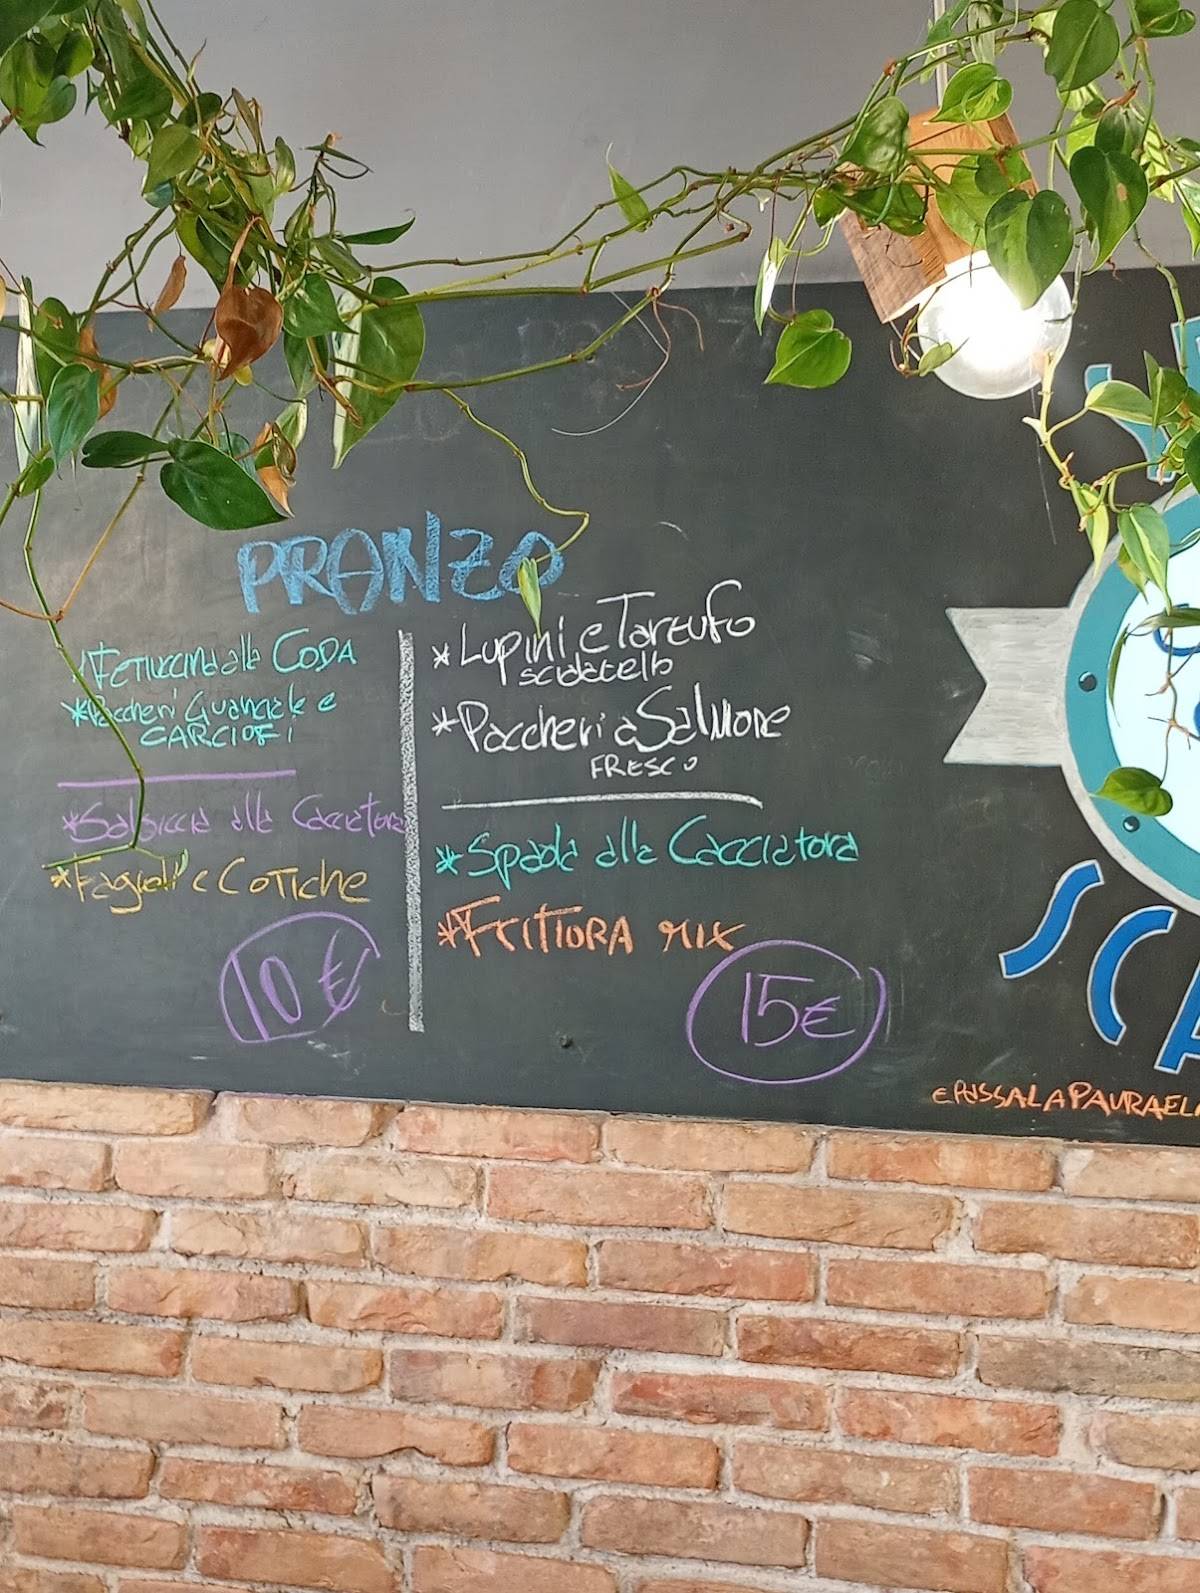 PRANZO
*Fettuccina alla CODA
*Paccheri Guanciale e
CARCIOFI
*Salsiccia alla Cacciatora
*Fagioli e COTiche
10 €
*Lupini e Tartufo
scialatelli
*Paccheri a Salmone
FRESCO
*Spada alla Cacciatora
*FRITTURA MIX
15€
SC
ePASSALAPAURAEL